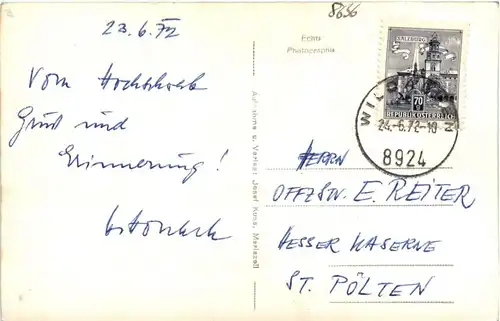 23.6.72
8656
Vom Hochschwab
Gruß und
Erinnerung!
Echte
Photographie
Aufnahme u. Verlag: Josef Kuss, Mariazell
SALZBURG
70
REPUBLIK ÖSTERREICH
24.-6.72-10
8924
HERRN
OFFZSTV. E. REITER
HESSER KASERNE
ST. PÖLTEN